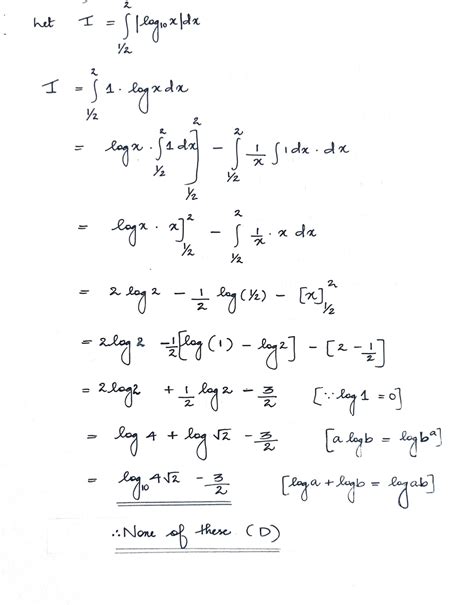 Let I = ∫_{1/2}^{2} |log₁₀x| dx
I = ∫_{1/2}^{2} 1 · log x dx
= log x · ∫_{1/2}^{2} 1 dx]_{1/2}^{2} − ∫_{1/2}^{2} 1/x ∫ 1 dx · dx
= log x · x]_{1/2}^{2} − ∫_{1/2}^{2} 1/x · x dx
= 2 log 2 − 1/2 log (1/2) − [x]_{1/2}^{2}
= 2 log 2 − 1/2 [log (1) − log 2] − [2 − 1/2]
= 2 log 2 + 1/2 log 2 − 3/2 [∵ log 1 = 0]
= log 4 + log √2 − 3/2 [a log b = log bᵃ]
= log₁₀ 4√2 − 3/2 [log a + log b = log ab]
∴ None of these (D)